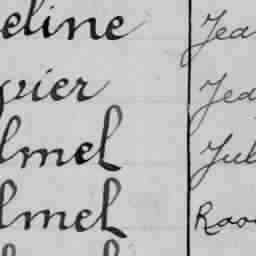 eline Jea
vier Jea
lmel Jul
lmel Rao